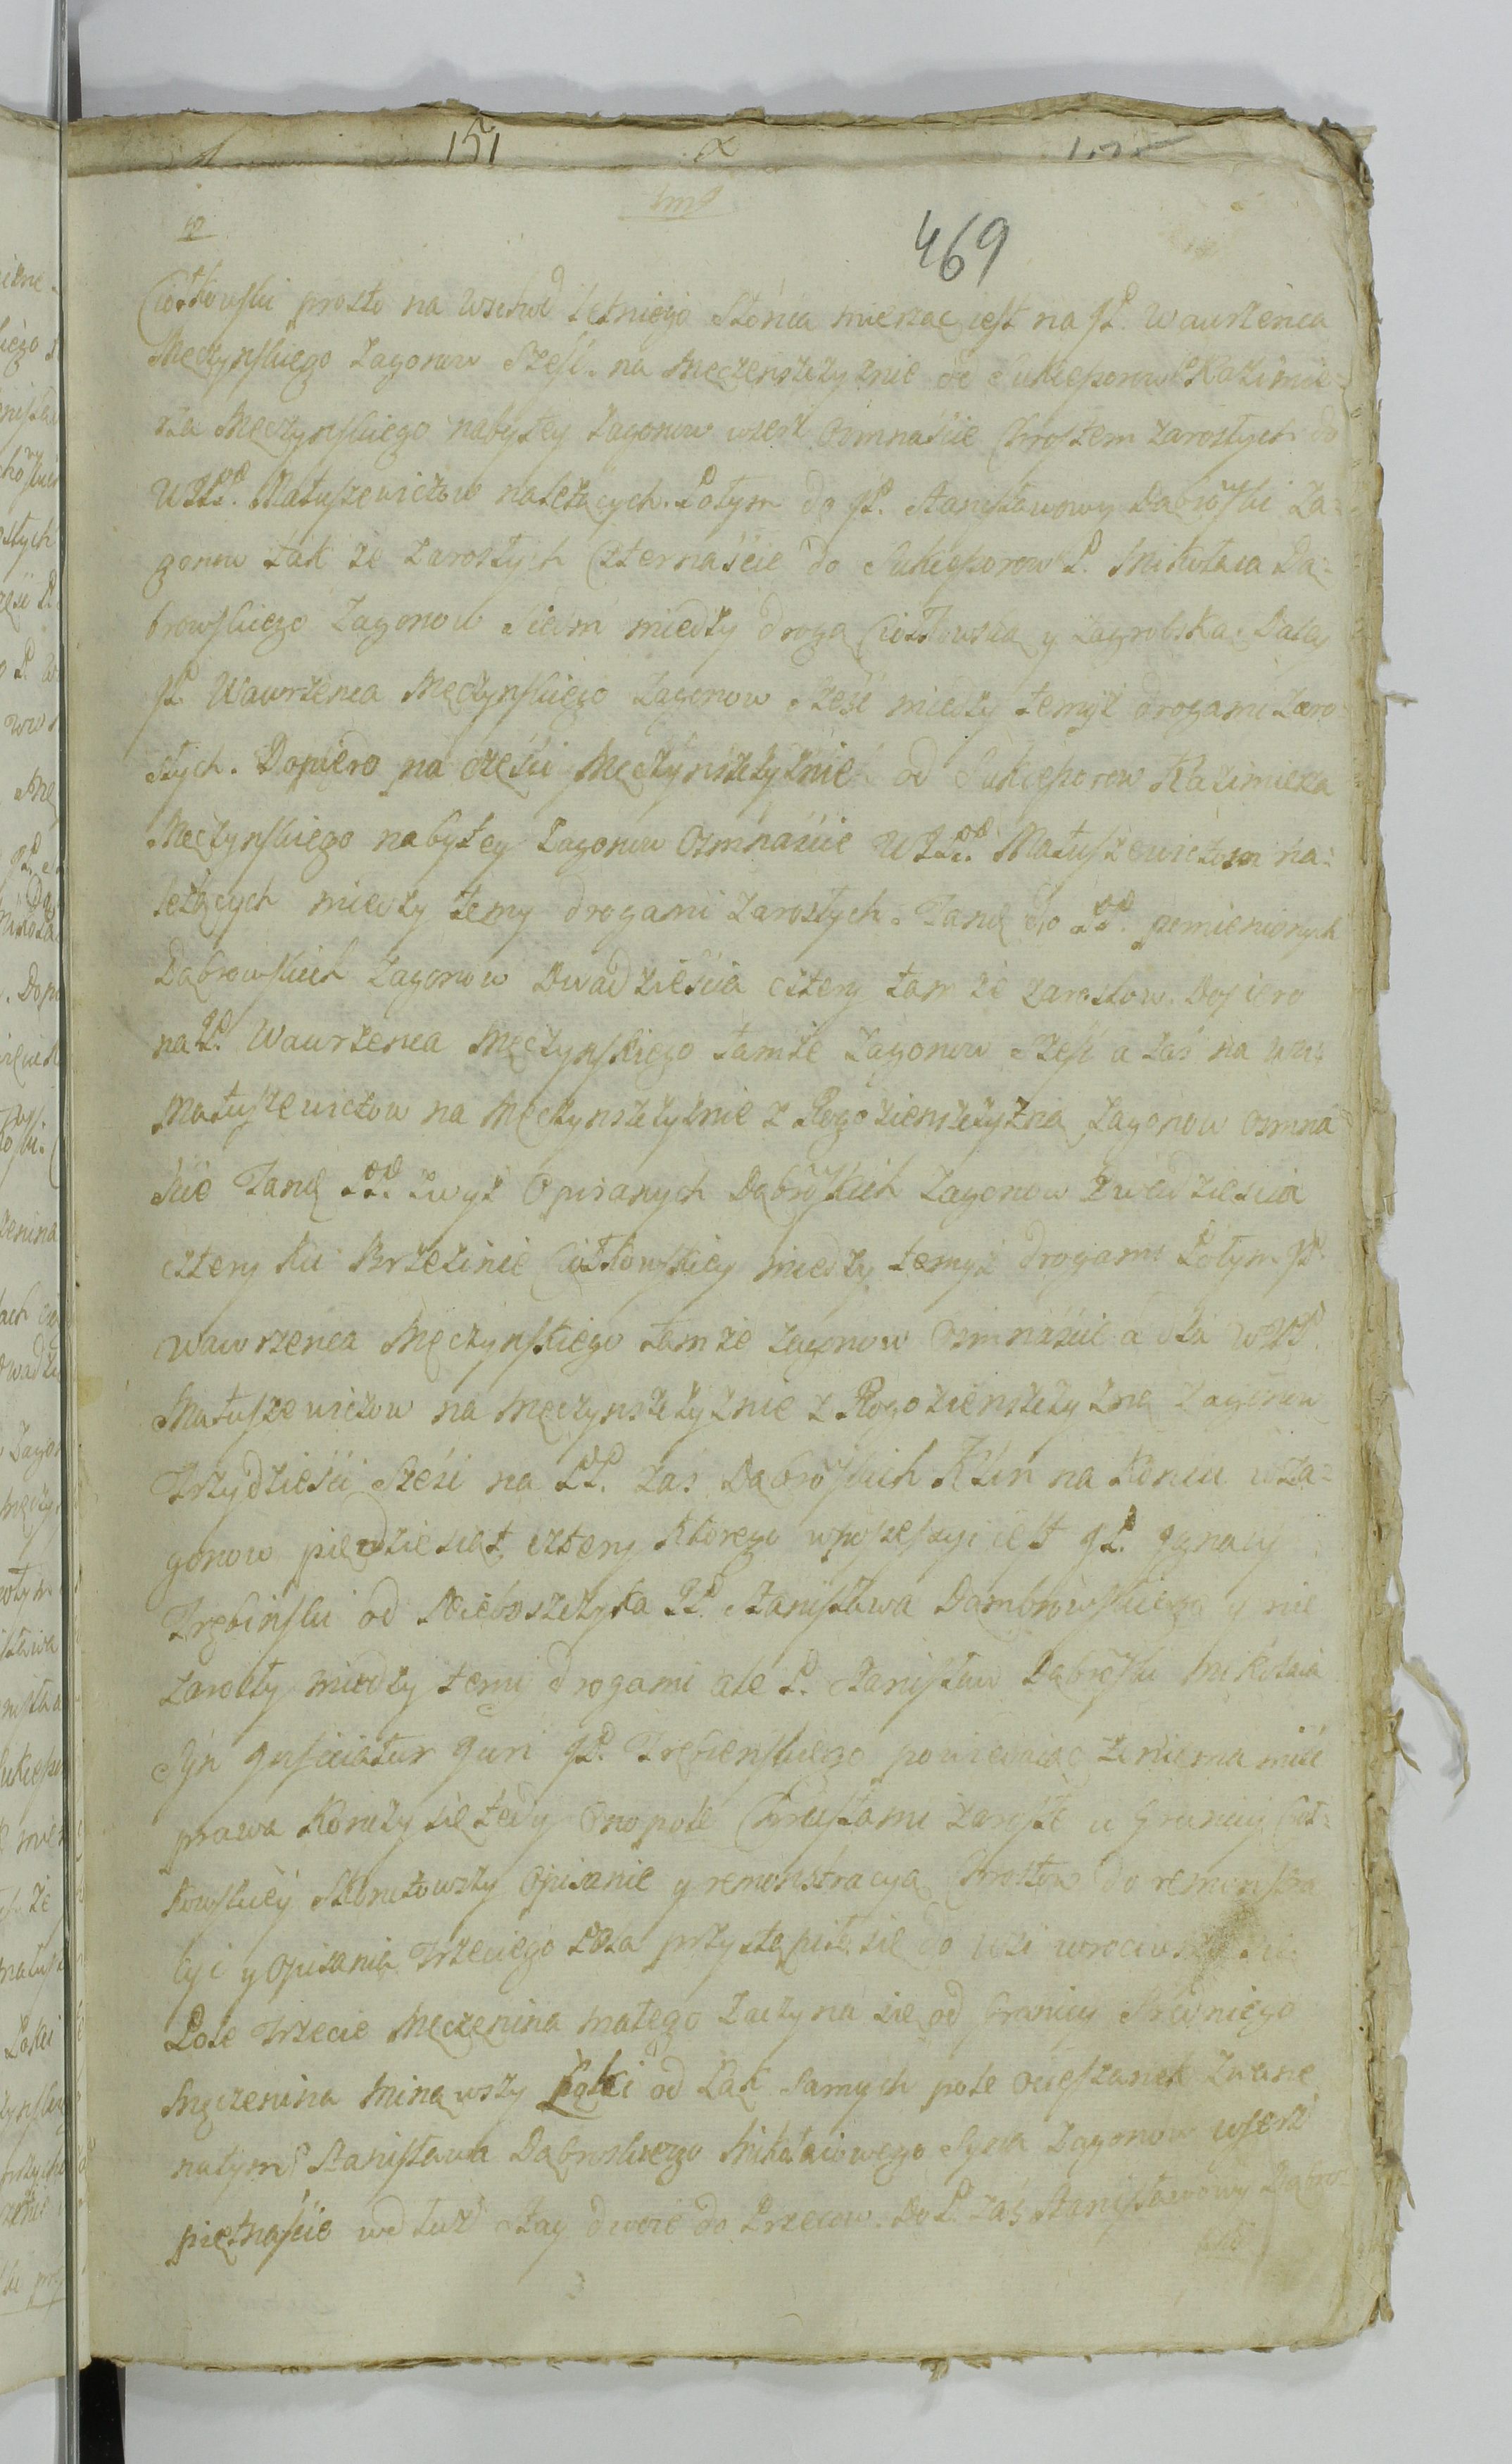 151
469
Ciołkowski prosto na wschod letniego słonca mierząc iest na JP. Wawrzenca
Męczynskiego zagonow sześć. na Męczenszczyznie od Sukcessorow P Kazimie-
rza Męczynskiego nabytey zagonow wszerz osmnaście Chrostem zarosłych do
WJPP. Matuszewiczow należących. Potym do JP. Stanisławowy Dąbroski za-
gonow tak że zarosłych czternaście do Sukcessorow P. Mikołaia Dą-
browskiego zagonow siedm miedzy drogą Ciołkowską y zagrobską. Daley
JP. Wawrzenca Męczynskiego zagonow sześć miedzy temiż drogami zaro-
słych. Dopiero na częsci Męczynszczyznie od Sukcessorow Kazimierza
Męczynskiego nabytey zagonow osmnaście WJPP. Matuszewiczom na-
leżących miedzy temy drogami zarosłych. Tandę do PP. pomienionych
Dąbrowskich zagonow dwadzieścia cztery tam że zarostow. Dopiero
na P. Wawrzenca Męczynskiego tamże zagonow sześć a zaś na WW
Matuszewiczow na Męczynszczyznie z Rogozienszczyzną zagonow osmna
ście Tandę PP. zwyż opisanych Dąbroskich zagonow dwadziescia
cztery ku Brzezinie Ciołkowskiey miedzy temyż drogami Potym JP.
Wawrzenca Męczynskiego tamże zagonow osmnaście a dla WJP.
Matuszewiczow na Męczynszczyznie z Rogozienszczyzną zagonow
trzydzieści sześć na PP. zaś Dąbroskich Klin na koncu w za-
gonow piędziesiąt cztery ktorego w possessyi iest JP. Jgnacy
Trębinski od Nieboszczyka JP. Stanisława Dambrowskiego y nie
zarosły miedzy temi drogami ale P. Stanisław Dąbroski Mikołaia
Syn Juri JP. Trębienskiego powiedaiąc że niema mieć
prawa Konczy się tedy Ono pole Chrustami zarosłe u Granicy Cioł-
kowskiey Skonczywszy opisanie y remonstracyą Chrostow do remonstra
cyi y opisania trzeciego Pola przystąpiło się do wsi wrociwszy się
Pole trzecie Męczenina małego zaczyna się od Granicy
Męczenina minąwszy Łąki od Łąk samych pole Ocieszanek zwane
natym P Stanisława Dąbroskiego Mikołaiowego Syna zagonow wszerz
piętnaście wdłuż staj dwoie do Przecow. Do P. zaś Stanisławowy Dąbro-